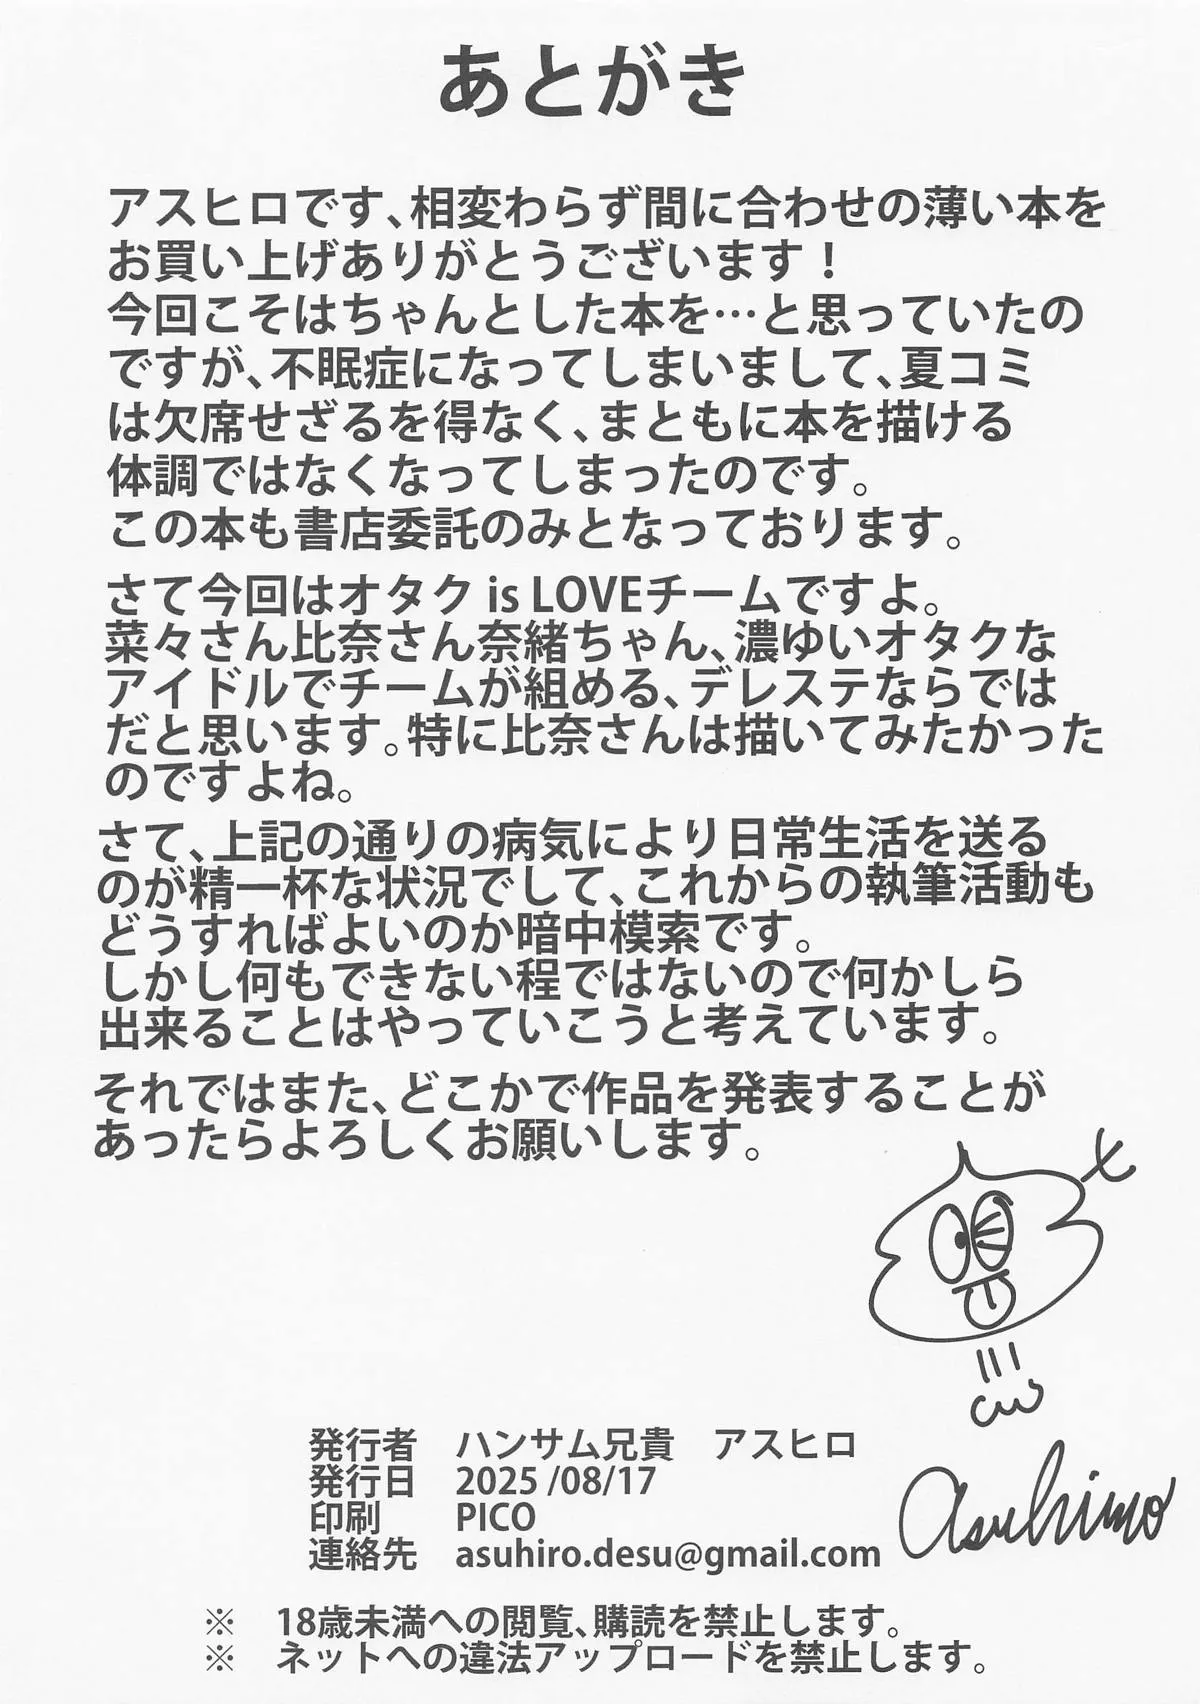 あとがき
アスヒロです、相変わらず間に合わせの薄い本を
お買い上げありがとうございます！
今回こそはちゃんとした本を…と思っていたの
ですが、不眠症になってしまいまして、夏コミ
は欠席せざるを得なく、まともに本を描ける
体調ではなくなってしまったのです。
この本も書店委託のみとなっております。
さて今回はオタク is LOVEチームですよ。
菜々さん比奈さん奈緒ちゃん、濃ゆいオタクな
アイドルでチームが組める、デレステならでは
だと思います。特に比奈さんは描いてみたかった
のですよね。
さて、上記の通りの病気により日常生活を送る
のが精一杯な状況でして、これからの執筆活動も
どうすればよいのか暗中模索です。
しかし何もできない程ではないので何かしら
出来ることはやっていこうと考えています。
それではまた、どこかで作品を発表することが
あったらよろしくお願いします。
発行者 ハンサム兄貴 アスヒロ
発行日 2025 /08/17
印刷 PICO
連絡先 asuhiro.desu@gmail.com
※ 18歳未満への閲覧、購読を禁止します。
※ ネットへの違法アップロードを禁止します。